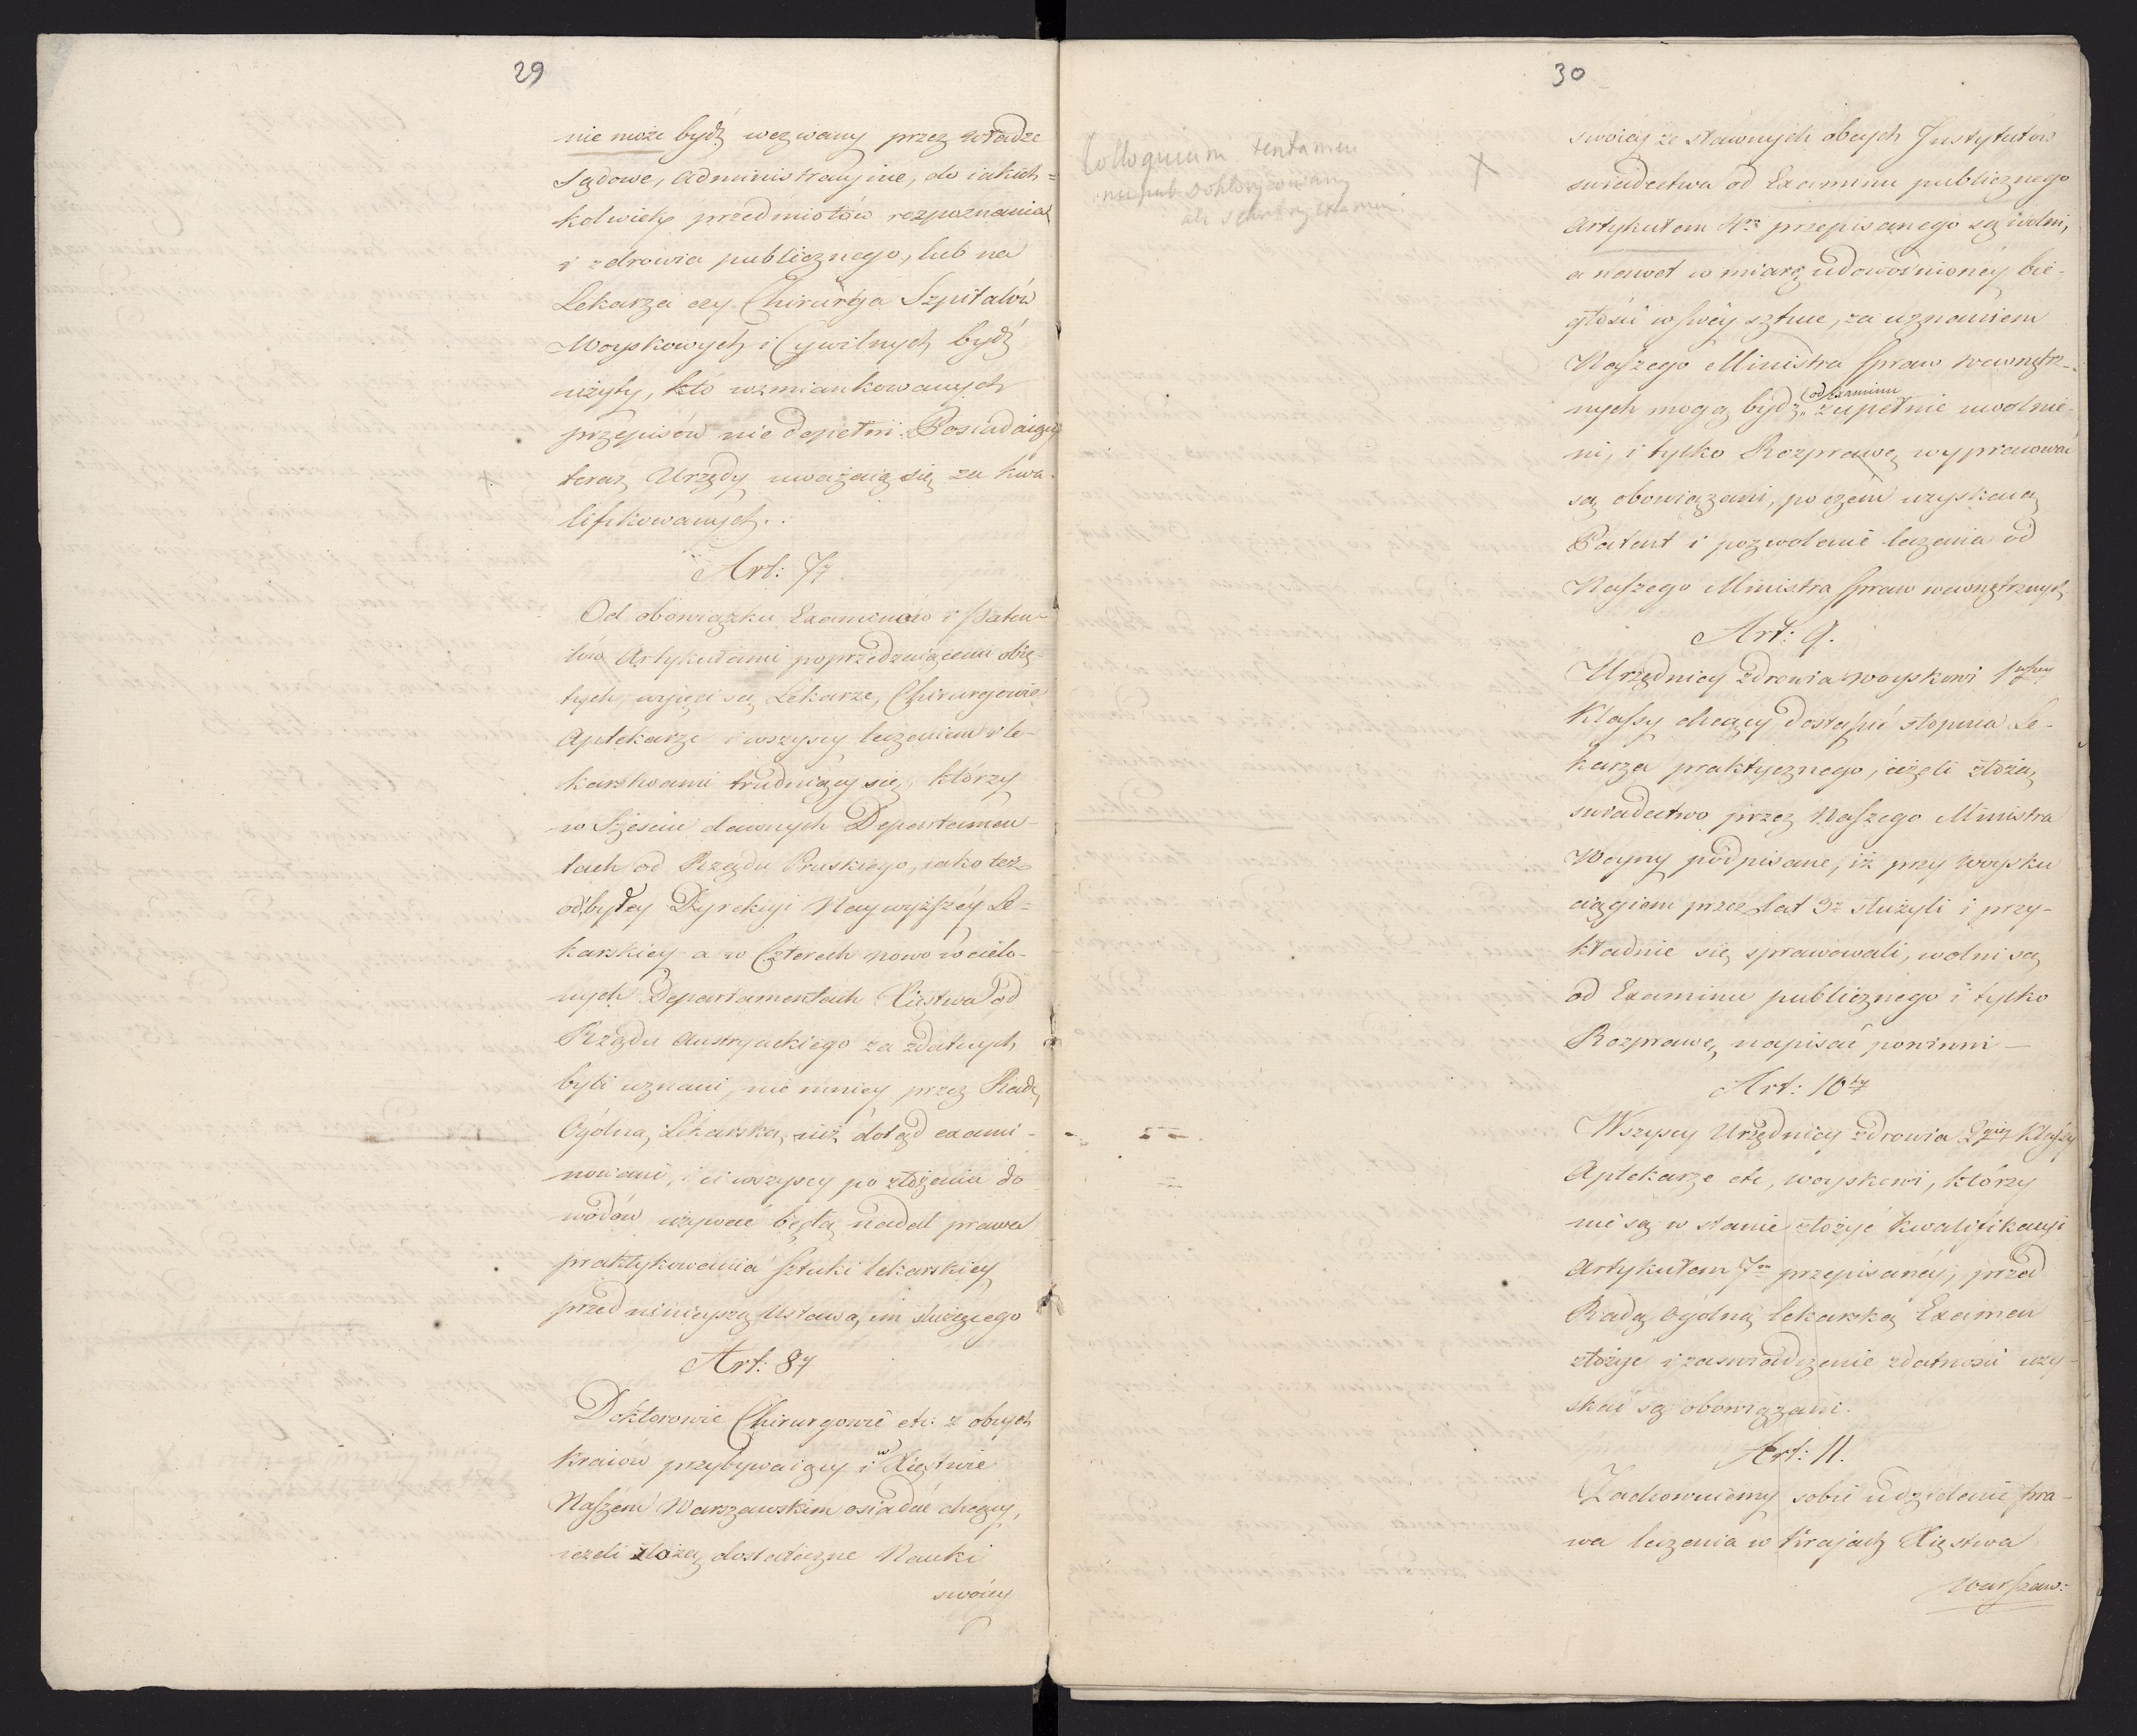 29
nie może bydź wezwany przez władze
Sądowe, administracyine, do iakich=
kolwiek przedmiotów rozpoznania
i zdrowia publicznego, lub na
Lekarza czy Chirurga Szpitalów
Woyskowych i Cywilnych bydź
użyty, kto wzmiankowanych
przepisów nie dopełni. Posiadaiący
teraz Urzędy uważaią się za kwa-
lifikowanych.
Art: 7y
Od obowiązku Examinów i Paten-
tów Artykułami poprzedzaiącemi obię-
tych, wyięci są Lekarze, Chirurgowie
Aptekarze i wszyscy leczeniem i le-
karstwami trudniący się, którzy
w Sześciu dawnych Departamen-
tach od Rządu Pruskiego, iako też
od byłey Dyrekcyi Naywyższéy Le=
karskiey a w Czterech nowo wcielo-
nych Departamentach Xięstwa od
Rządu Austryackiego za zdatnych
byli uznani, nie mniey przez Radę
Ogólną Lekarską, iuż dotąd exami-
nowani, i ci wszyscy po złożeniu do
wodów używać będą nadal prawa
praktykowania sztuki lekarskiey
przed ninieyszą Ustawą im służącego
Art: 8y
Doktorowie Chirurgowie etc: z obcych
Kraiów przybywaiący i w Xięstwie
Naszém Warszawskim osiadać chcący,
ieżeli złożą dostateczne Nauki
swoiéy
30
Colloquium tentamen
swoiéy ze sławnych obcych Instytutów
swiadectwa od Examinu publicznego
Artykułem 4m przepisanego są wolni,
a nawet w miarę udowodnionéy bie-
głości w swéy sztuce, za uznaniem
Naszego Ministra Spraw wewnętrz-
nych mogą bydź od Examinu zupełnie uwolnie-
ni, i tylko Rozprawę wypracować
są obowiązani, poczém uzyskaią
Patent i pozwolenie leczenia od
Naszego Ministra Spraw wewnętrznych
Art: 9.
Urzędnicy zdrowia woyskowi 1wszey
Klassy chcący dostąpić stopnia Le-
karza praktycznego, ieżeli złożą
swiadectwo przez Naszego Ministra
Woyny podpisane, iż przy woysku
ciągiem przez lat 3z służyli i przy-
kładnie się sprawowali, wolni są
od Examinu publicznego i tylko
Rozprawę napisać powinni —
Art: 10ty
Wszyscy Urzędnicy zdrowia 2giey Klassy
Aptekarze etc, woyskowi, którzy
nie są w stanie złożyć kwalifikacyi
Artykułem 7m przepisanéy, przed
Radą Ogólną lekarską Examen
złożyć i zaswiadczenie zdatności uzy-
skać są obowiązani.
Art: 11.
Zachowuiemy sobie udzielenie pra-
wa leczenia w Krajach Xięstwa
Warszaw: